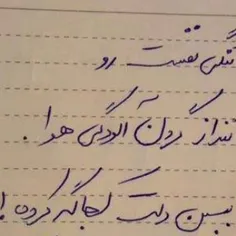 تنگی نفست رو
ننداز گردن آلودگی هوا.
ببین دلت کجا گیر کرده